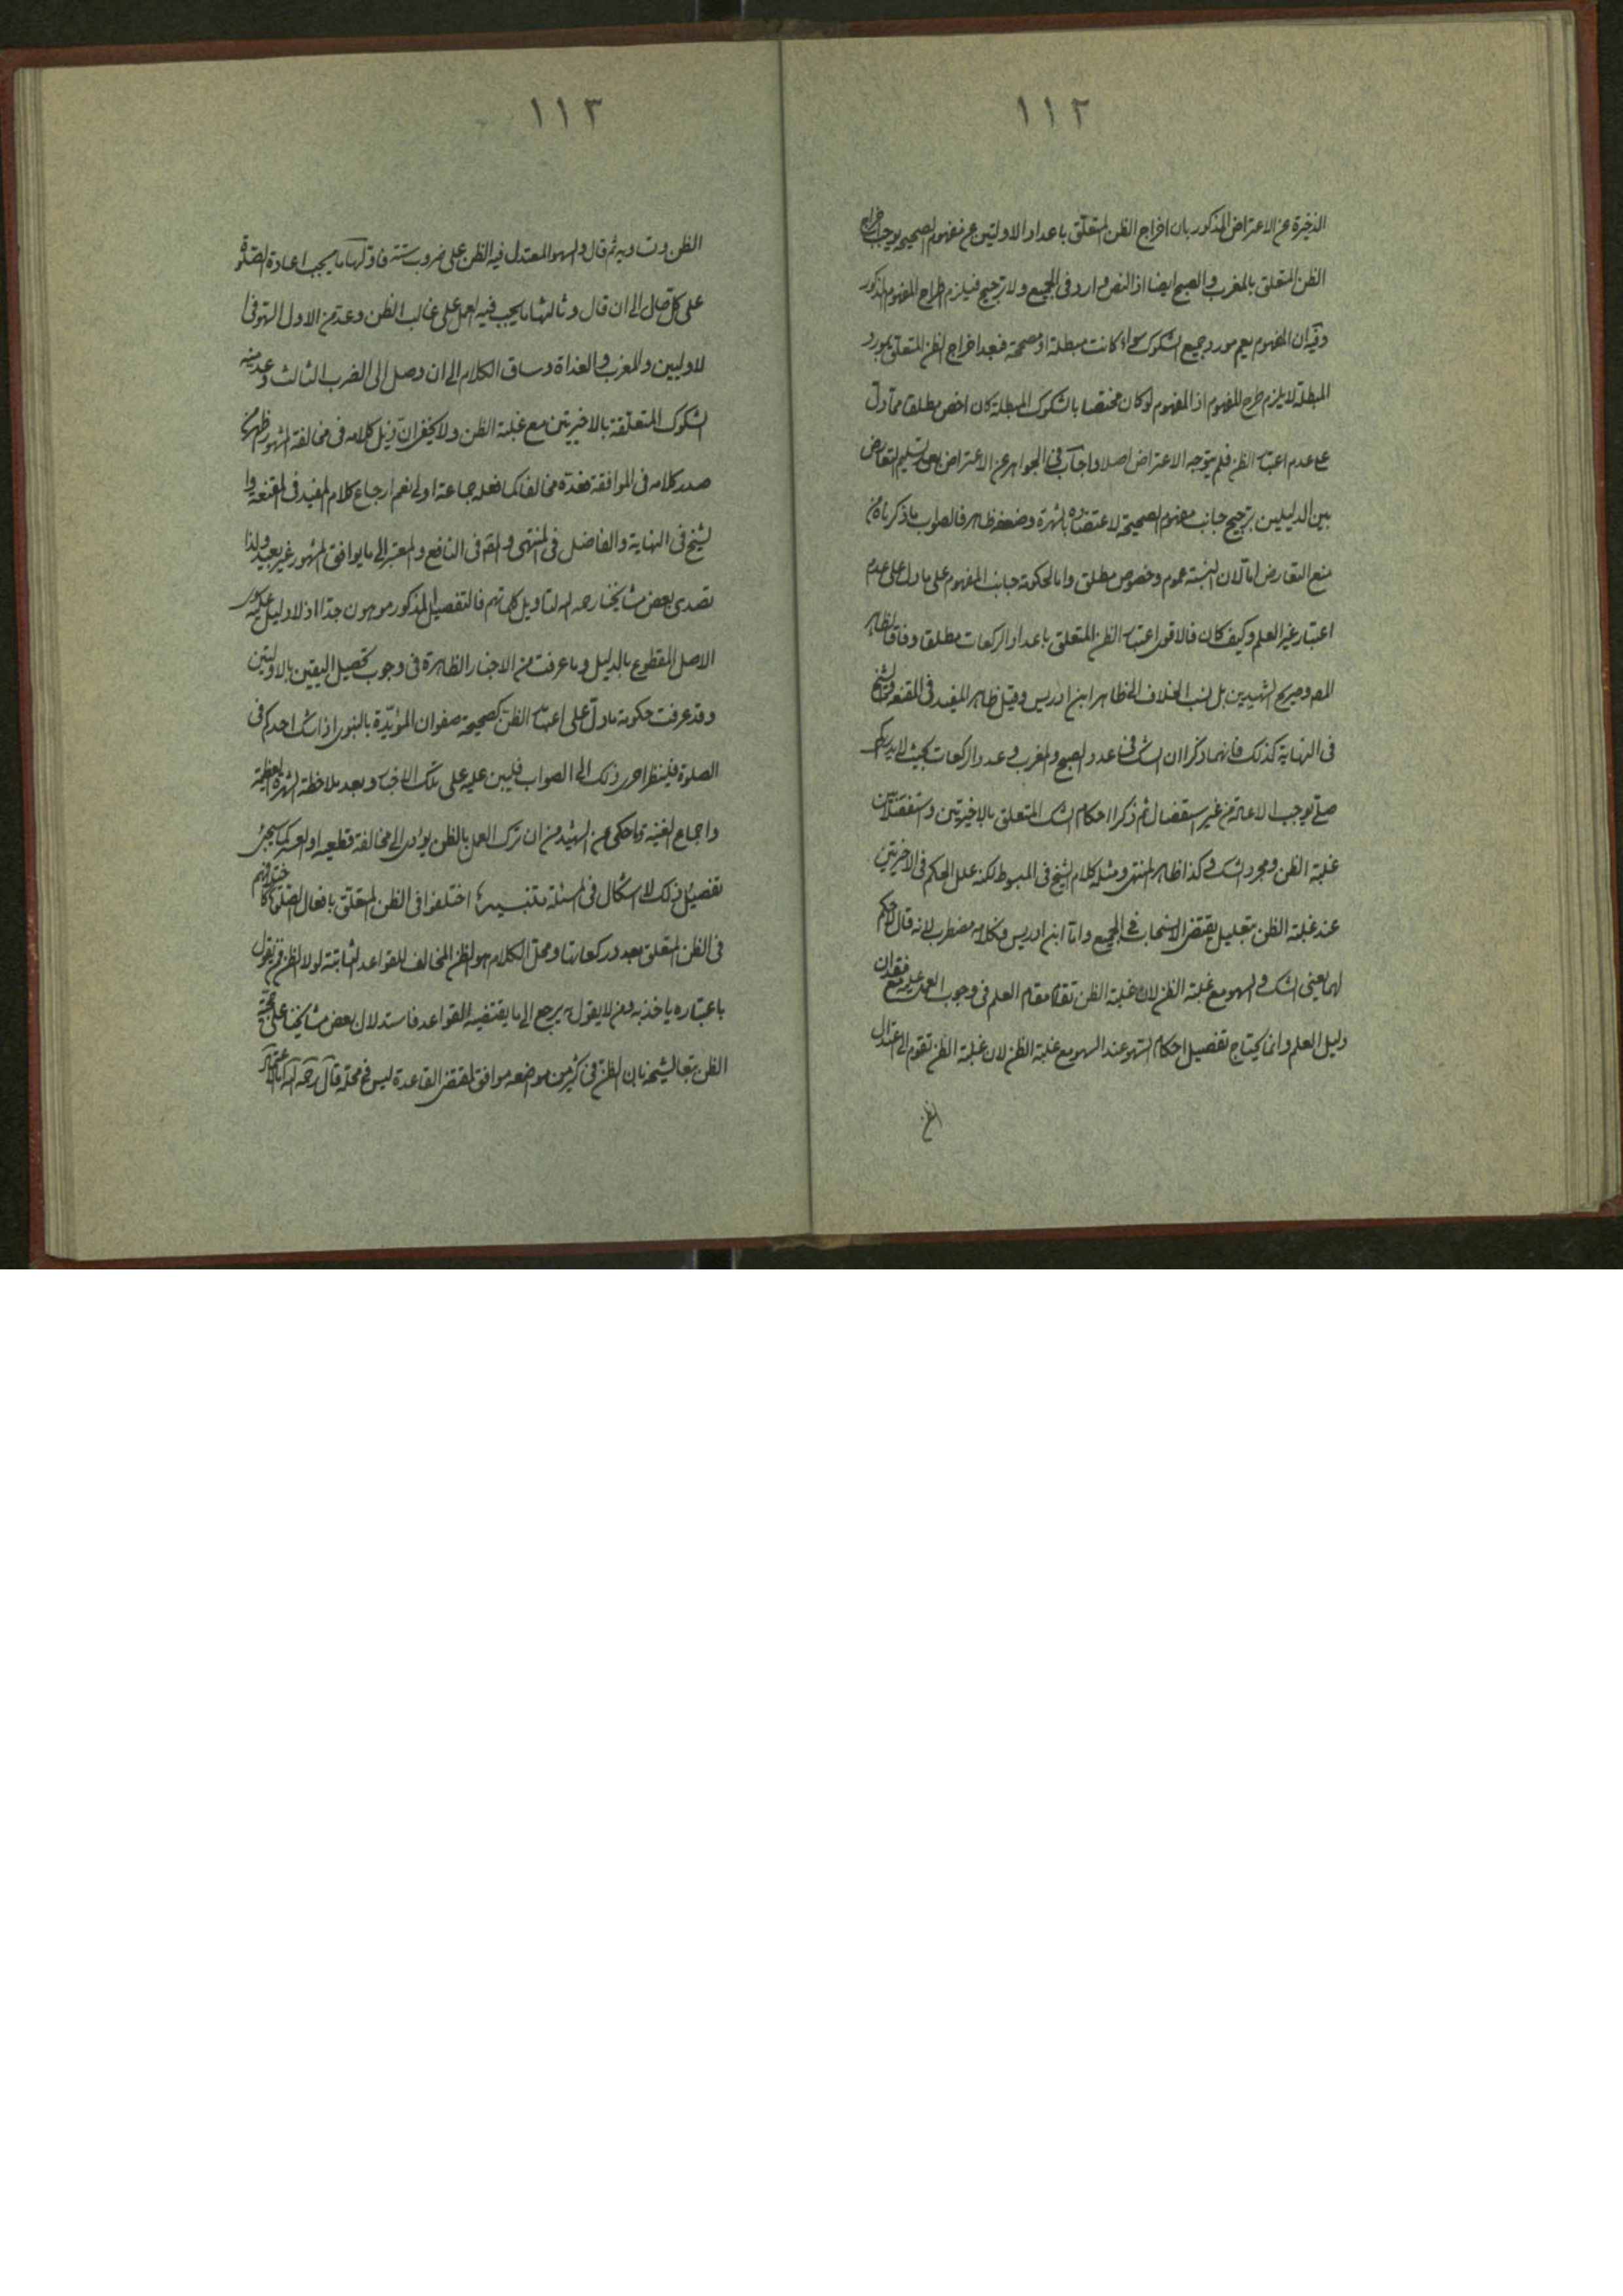 ١١٢
الذخيرة عن الاعتراض المذكور بان اخراج الظن المتعلق باعداد الاوليين عن مفهوم الصحيح يوجب اخراج
الظن المتعلق بالمغرب والصبح ايضا اذ النص وارد فى الجميع ولا ترجيح فيلزم طرح المفهوم المذكور
وفيه ان المفهوم يعم مورد جميع الشكوك سواء كانت مبطلة او مصححة فبعد اخراج الظن المتعلق بمورد
المبطلة لا يلزم طرح المفهوم اذ المفهوم لو كان مختصا بالشكوك المبطلة كان اخص مطلقا مما دل
على عدم اعتبار الظن فلم يتوجه الاعتراض اصلا واجاب فى الجواهر عن الاعتراض بعد تسليم التعارض
بين الدليلين بترجيح جانب مفهوم الصحيحة لاعتضاده بالشهرة وضعفه ظاهر فالصواب ما ذكرناه من
منع التعارض اما لان النسبة عموم وخصوص مطلق واما لحكومة جانب المفهوم على ما دل على عدم
اعتبار غير العلم وكيف كان فالاقوى اعتبار الظن المتعلق باعداد الركعات مطلقا وفاقا لظاهر
المص وصريح الشهيدين بل نسب الخلاف الى ظاهر ابن ادريس وقيل ظاهر المفيد فى المقنعه والشيخ
فى النهاية كذلك فانهما ذكرا ان الشك فى اعداد الصبح والمغرب وعدد الركعات بحيث لا يدرى كم
صلى يوجب الاعادة من غير استفصال ثم ذكرا احكام الشك المتعلق بالاخيرتين واستفصلا بين
غلبة الظن ومجرد الشك وكذا ظاهر المنتهى ومثله كلام الشيخ فى المبسوط لكنه علل الحكم فى الاخيرتين
عند غلبة الظن بتعليل يقتضى الانسحاب فى الجميع واما ابن ادريس فكلامه مضطرب لانه قال لا حكم
لهما يعنى الشك والسهو مع غلبة الظن لان غلبة الظن تقوم مقام العلم فى وجوب العمل عليه مع فقدان
دليل العلم وانما يحتاج تفصيل احكام السهو عند السهو مع غلبة الظن لان غلبة الظن تقوم الى اعتدال
الظن
١١٣
الظن وتساويه ثم قال والسهو المعتدل فيه الظن على ضروب ستة فاولها ما يجب اعادة الصلوة
على كل حال الى ان قال وثالثها ما يجب فيه العمل على غالب الظن وعد من الاول السهو فى ا
لاوليين والمغرب والغداة وساق الكلام الى ان وصل الى الضرب الثالث وعد منه
الشكوك المتعلقة بالاخيرتين مع غلبة الظن ولا يخفى ان ذيل كلامه فى مخالفة المشهور اظهر من
صدر كلامه فى الموافقة فعده مخالفا كما فعله جماعة اولى نعم ارجاع كلام المفيد فى المقنعة وا
لشيخ فى النهاية والفاضل فى المنتهى والمص فى النافع والمعتبر الى ما يوافق المشهور غير بعيد ولذا
تصدى بعض مشايخنا رحمه الله لتاويل كلماتهم فالتفصيل المذكور موهون جدا اذ لا دليل عليه سوى
الاصل المقطوع بالدليل وما عرفت من الاخبار الظاهرة فى وجوب تحصيل اليقين بالاوليتين
وقد عرفت حكومة ما دل على اعتبار الظن كصحيحة صفوان المؤيدة بالنبوى اذا شك احدكم فى
الصلوة فلينظر احرى ذلك الى الصواب فليبن عليه على تلك الاخبار وبعد ملاحظة الشهرة العظيمة
واجماع الغنية وما حكى عن الشهيد من ان ترك العمل بالظن يؤدى الى مخالفة قطعيه او العسر كما سيجئ
تفصيل ذلك لا اشكال فى المسئلة تنبيه اختلفوا فى الظن المتعلق بافعال الصلوة كاختلافهم
فى الظن المتعلق بعدد ركعاتها ومحل الكلام هو الظن المخالف للقواعد الثابتة لولا الظن فمن يقول
باعتباره ياخذ به ومن لا يقول به يرجع الى ما يقتضيه القواعد فاستدلال بعض مشايخنا على حجية
الظن تبعا لشيخه بان الظن فى كثير من مواضعه موافق لمقتضى القاعدة ليس فى محله قال رحمه الله